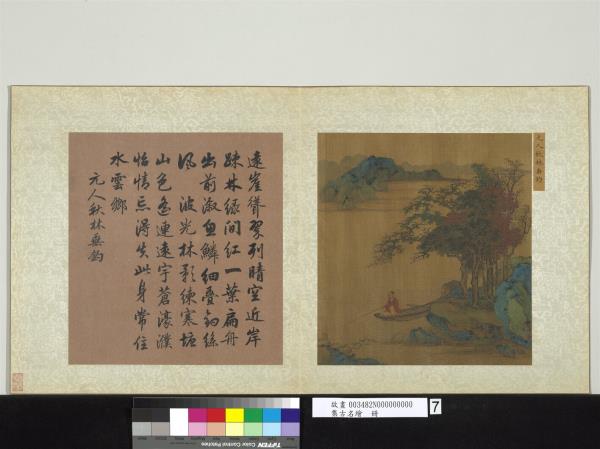 遠崖聳翠列晴空近岸
疎林綠間紅一葉扁舟
出前溆魚鱗細疊釣絲
風 波光林影練寒塘
山色遙連遠宇蒼濠濮
怡情忘得失此身常住
水雲鄉
元人秋林垂釣
元人秋林垂釣
故畫 003482N000000000
集古名繪 冊
7
TIFFEN Color Control Patches